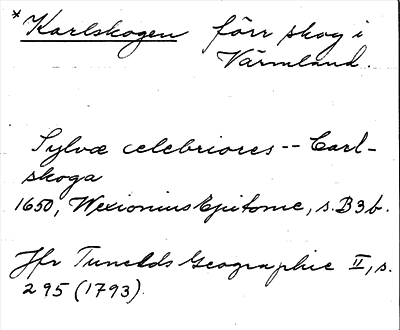 *Karlskogen förr skog i
Värmland.
Sylvæ celebriores -- Carl-
skoga
1650, Wexionius Epitome, s. B3b.
Jfr Tunelds Geographie II, s.
295 (1793).